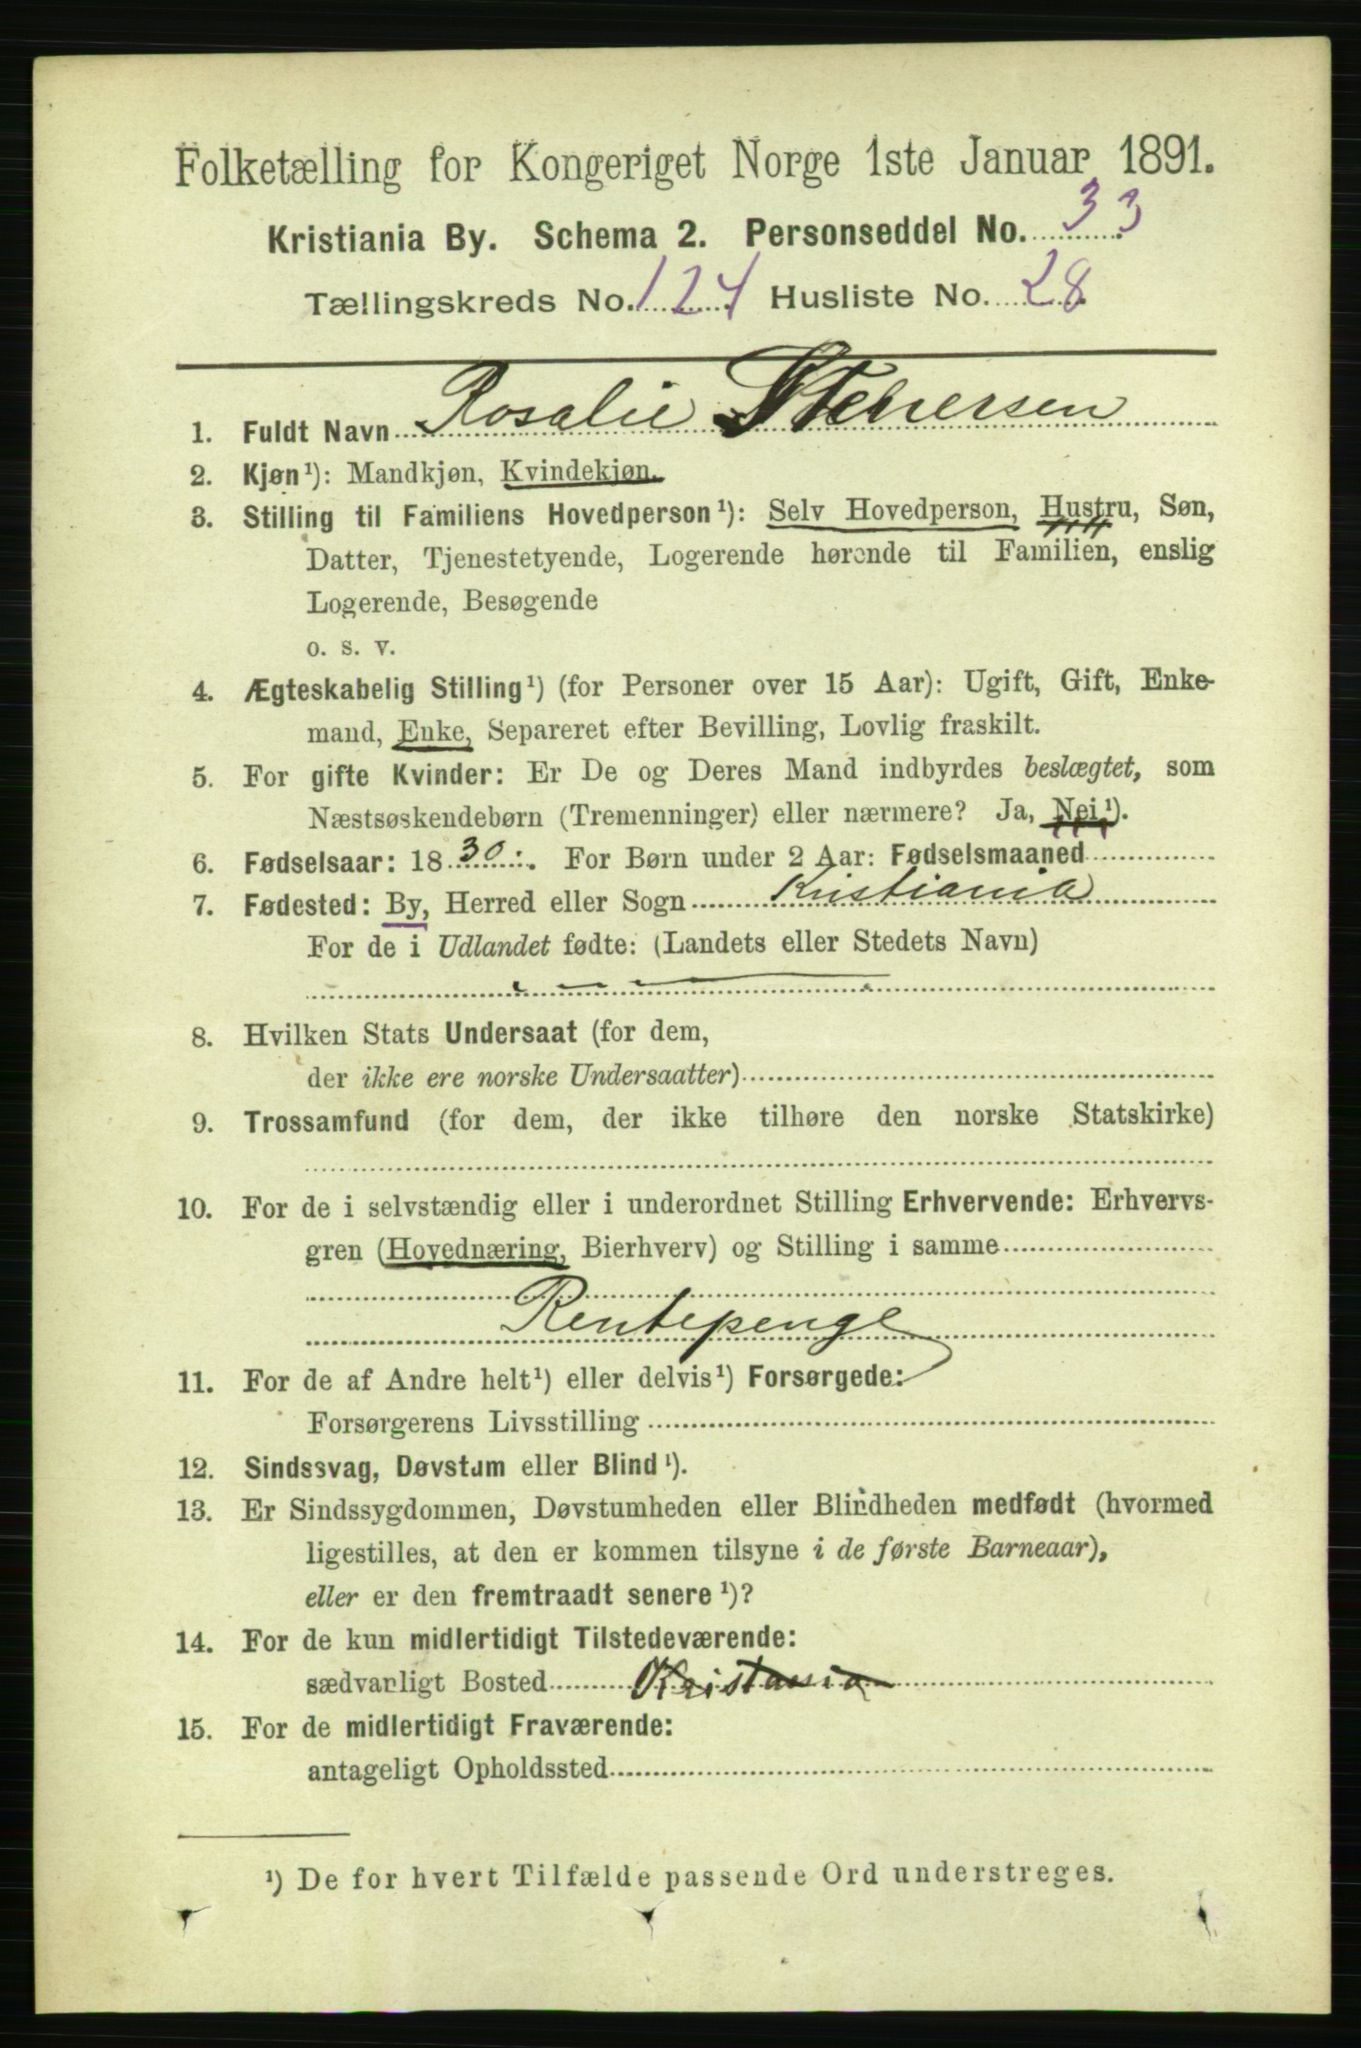 Folketælling for Kongeriget Norge 1ste Januar 1891.
Kristiania By. Schema 2. Personseddel No. 33
Tællingskreds No. 124 Husliste No. 28
1. Fuldt Navn Rosalie
2. Kjøn¹): Mandkjøn, Kvindekjøn.
3. Stilling til Familiens Hovedperson¹): Selv Hovedperson, Hustru, Søn,
Datter, Tjenestetyende, Logerende hørende til Familien, enslig
Logerende, Besøgende
o. s. v.
4. Ægteskabelig Stilling¹) (for Personer over 15 Aar): Ugift, Gift, Enke-
mand, Enke, Separeret efter Bevilling, Lovlig fraskilt.
5. For gifte Kvinder: Er De og Deres Mand indbyrdes beslægtet, som
Næstsøskendebørn (Tremenninger) eller nærmere? Ja, Nei¹).
6. Fødselsaar: 1830. For Børn under 2 Aar: Fødselsmaaned
7. Fødested: By, Herred eller Sogn Kristiania
For de i Udlandet fødte: (Landets eller Stedets Navn)
8. Hvilken Stats Undersaat (for dem,
der ikke ere norske Undersaatter)
9. Trossamfund (for dem, der ikke tilhøre den norske Statskirke)
10. For de i selvstændig eller i underordnet Stilling Erhvervende: Erhvervs-
gren (Hovednæring, Bierhverv) og Stilling i samme
Rentepenge
11. For de af Andre helt¹) eller delvis¹) Forsørgede:
Forsørgerens Livsstilling
12. Sindssvag, Døvstum eller Blind¹).
13. Er Sindssygdommen, Døvstumheden eller Blindheden medfødt (hvormed
ligestilles, at den er kommen tilsyne i de første Barneaar),
eller er den fremtraadt senere¹)?
14. For de kun midlertidigt Tilstedeværende:
sædvanligt Bosted Kristania
15. For de midlertidigt Fraværende:
antageligt Opholdssted
¹) De for hvert Tilfælde passende Ord understreges.